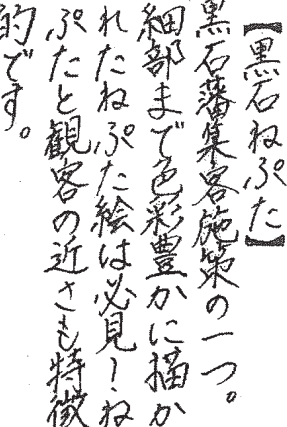 【黒石ねぷた】
黒石藩集客施策の一つ。
細部まで色彩豊かに描か
れたねぷた絵は必見！ね
ぷたと観客の近さも特徴
的です。